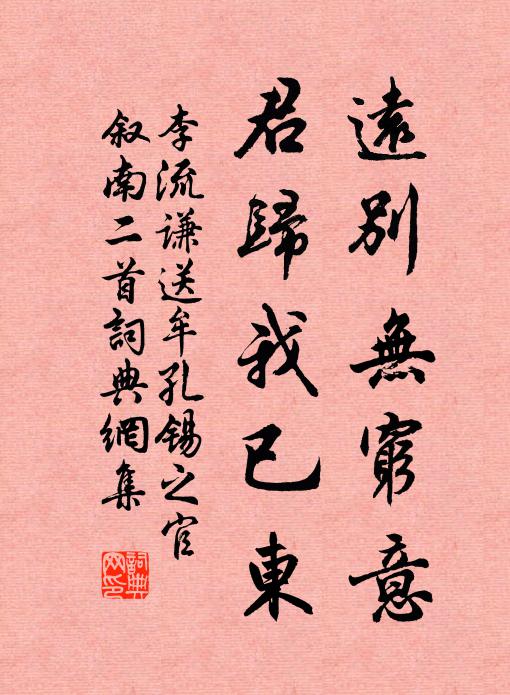 遠別無窮意
君歸我已東
李流謙送牟孔錫之官
敘南二首詞典網集
詞典
网印